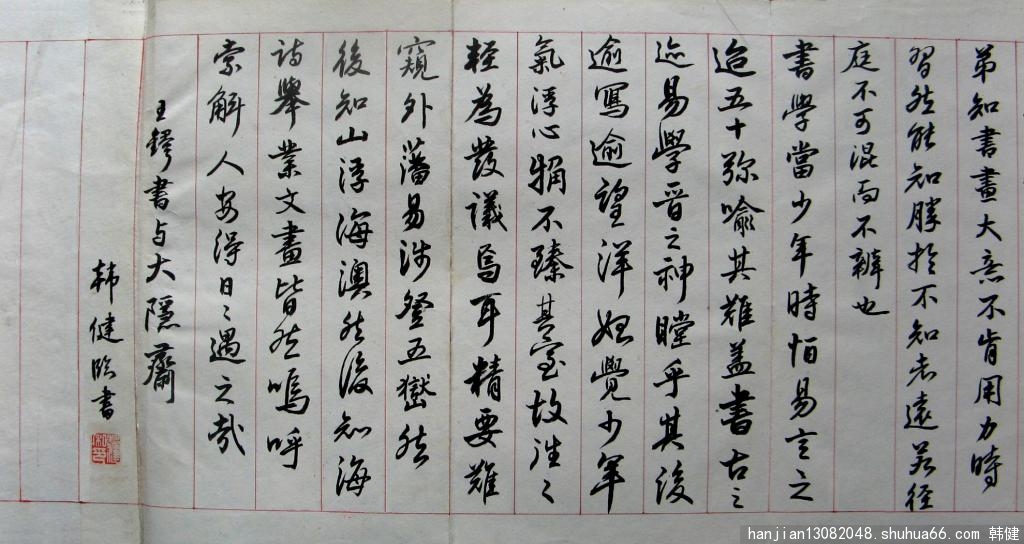 弟知書畫大意不肯用力時
習然能知勝於不知者遠若徑
庭不可混而不辨也
書學當少年時怕易言之
迨五十弥喻其難蓋書古之
迹易學晋之神瞠乎其後
逾寫逾望洋始覺少年
氣浮心猾不臻其室故往〻
輕為發議焉耳精要難
窺外藩易涉登五嶽然
後知山浮海澳然後知海
詩舉業文畫皆然嗚呼
索解人安得日〻遇之哉
王鐸書与大隱齋
韩健臨書
hanjian13082048.shuhua66.com 韩健